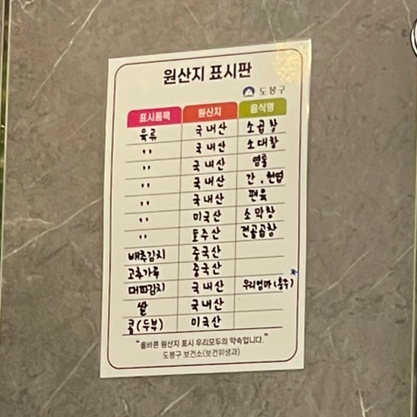 원산지 표시판
도봉구
표시품목 원산지 음식명
육류 국내산 소곱창
,, 국내산 소대창
,, 국내산 염통
,, 국내산 간, 천엽
,, 국내산 편육
,, 미국산 소막창
,, 호주산 전골곱창
배추김치 중국산
고추가루 중국산
대파김치 국내산 우리엄마(충주)
쌀 국내산
콩(두부) 미국산
"올바른 원산지 표시 우리모두의 약속입니다."
도봉구 보건소(보건위생과)